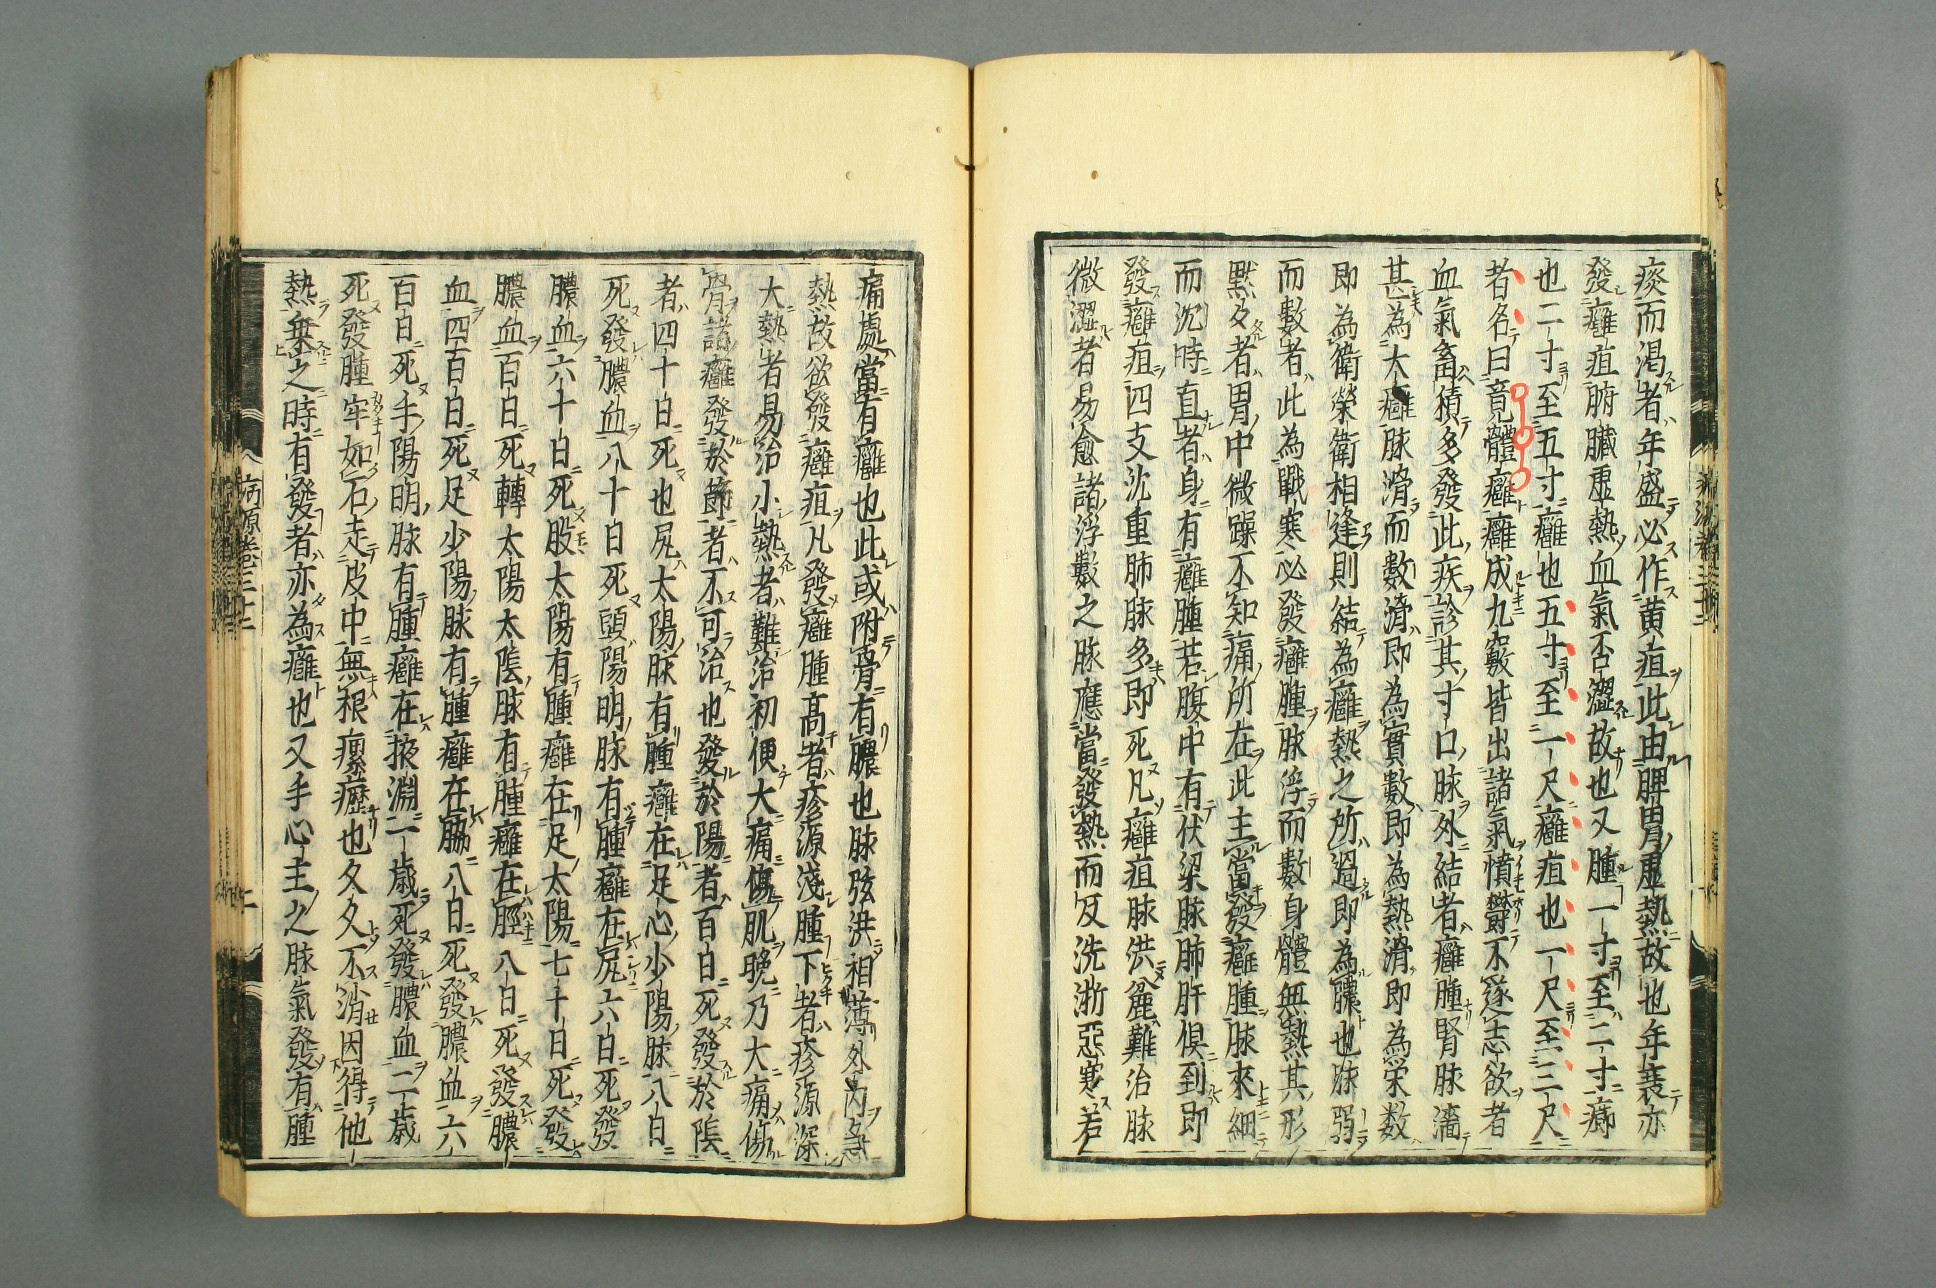 痰而渴者年盛必作黃疸此由脾胃虛熱故也年衰亦
發癰疽腑臟虛熱血氣否澀故也又腫一寸至二寸癤
也二寸至五寸癰也五寸至一尺癰疽也一尺至二尺
者名曰竟體癰癰成九竅皆出諸氣憤鬱不遂志欲者
血氣畜積多發此疾診其寸口脉外結者癰腫腎脉濇
甚為大癰脉滑而數滑即為實數即為熱滑即為榮数
即為衛榮衛相逢則結為癰熱之所過即為膿也脉弱
而數者此為戰寒必發癰腫脉浮而數身體無熱其形
默々者胃中微躁不知痛所在此主當發癰腫脉來細
而沉時直者身有癰腫若腹中有伏梁脉肺肝俱到即
發癰疽四支沈重肺脉多即死凡癰疽脉洪麁難治脉
微澀者易愈諸浮數之脉應當發熱而反洗淅惡寒若
痛處當有癰也此或附骨有膿也脉弦洪相薄外內急
熱故欲發癰疽凡發癰腫高者疹源淺腫下者疹源深
大熱者易治小熱者難治初便大痛傷肌晚乃大痛傷
骨諸癰發於節者不可治也發於陽者百日死發於陰
者四十日死也尻太陽脉有腫癰在足心少陽脉八日
死發膿血八十日死頭陽明脉有腫癰在尻六日死發
膿血六十日死股太陽有腫癰在足太陽七十日死發
膿血百日死轉太陽太陰脉有腫癰在脛八日死發膿
血四百日死足少陽脉有腫癰在脇八日死發膿血六
百日死手陽明脉有腫癰在掖淵一歳死發膿血二歳
死發腫牢如石走皮中無根瘰癧也久久不消因得他
熱乗之時有發者亦為癰也又手心主之脉氣發有腫
病源卷三十三